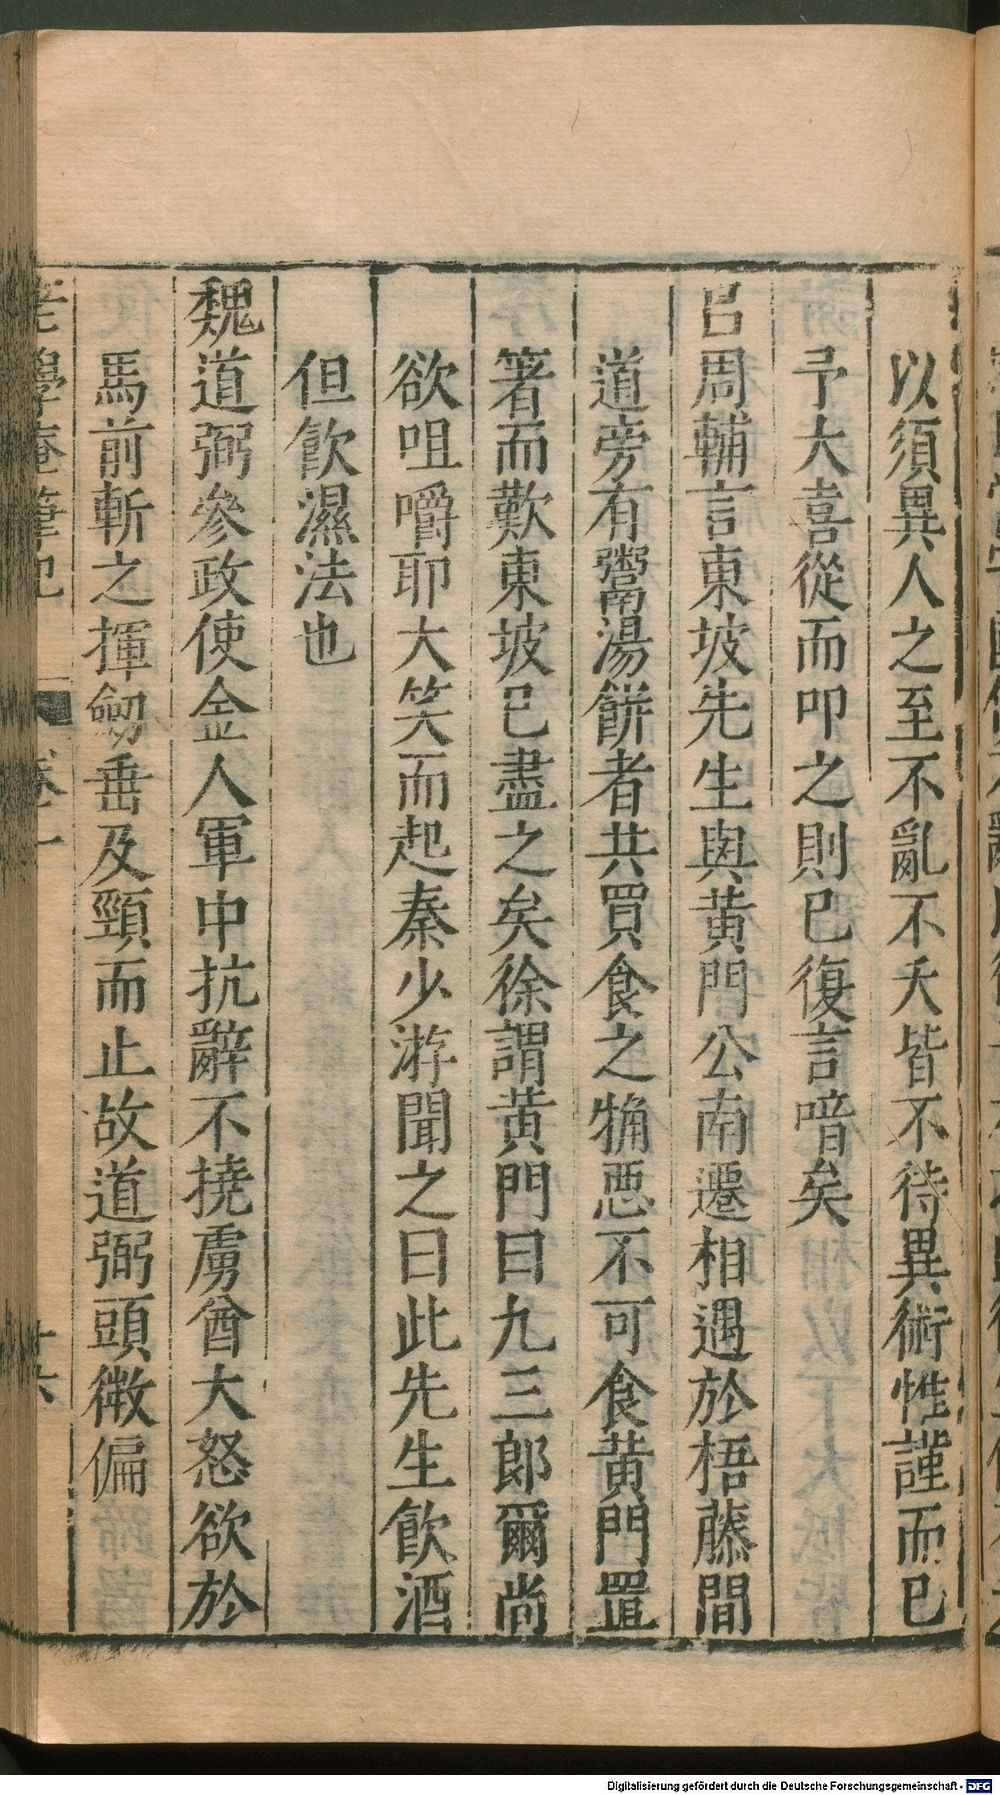 以須異人之至不亂不夭皆不待異術惟謹而已
予大喜從而叩之則已復言喑矣
呂周輔言東坡先生與黃門公南遷相遇於梧藤間
道旁有鬻湯餅者共買食之觕惡不可食黃門置
箸而歎東坡已盡之矣徐謂黃門曰九三郎爾尚
欲咀嚼耶大笑而起秦少游聞之曰此先生飲酒
但飲濕法也
魏道弼參政使金人軍中抗辭不撓虜酋大怒欲於
馬前斬之揮劒垂及頸而止故道弼頭微偏
老學庵筆記 卷一 十六
Digitalisierung gefördert durch die Deutsche Forschungsgemeinschaft - DFG